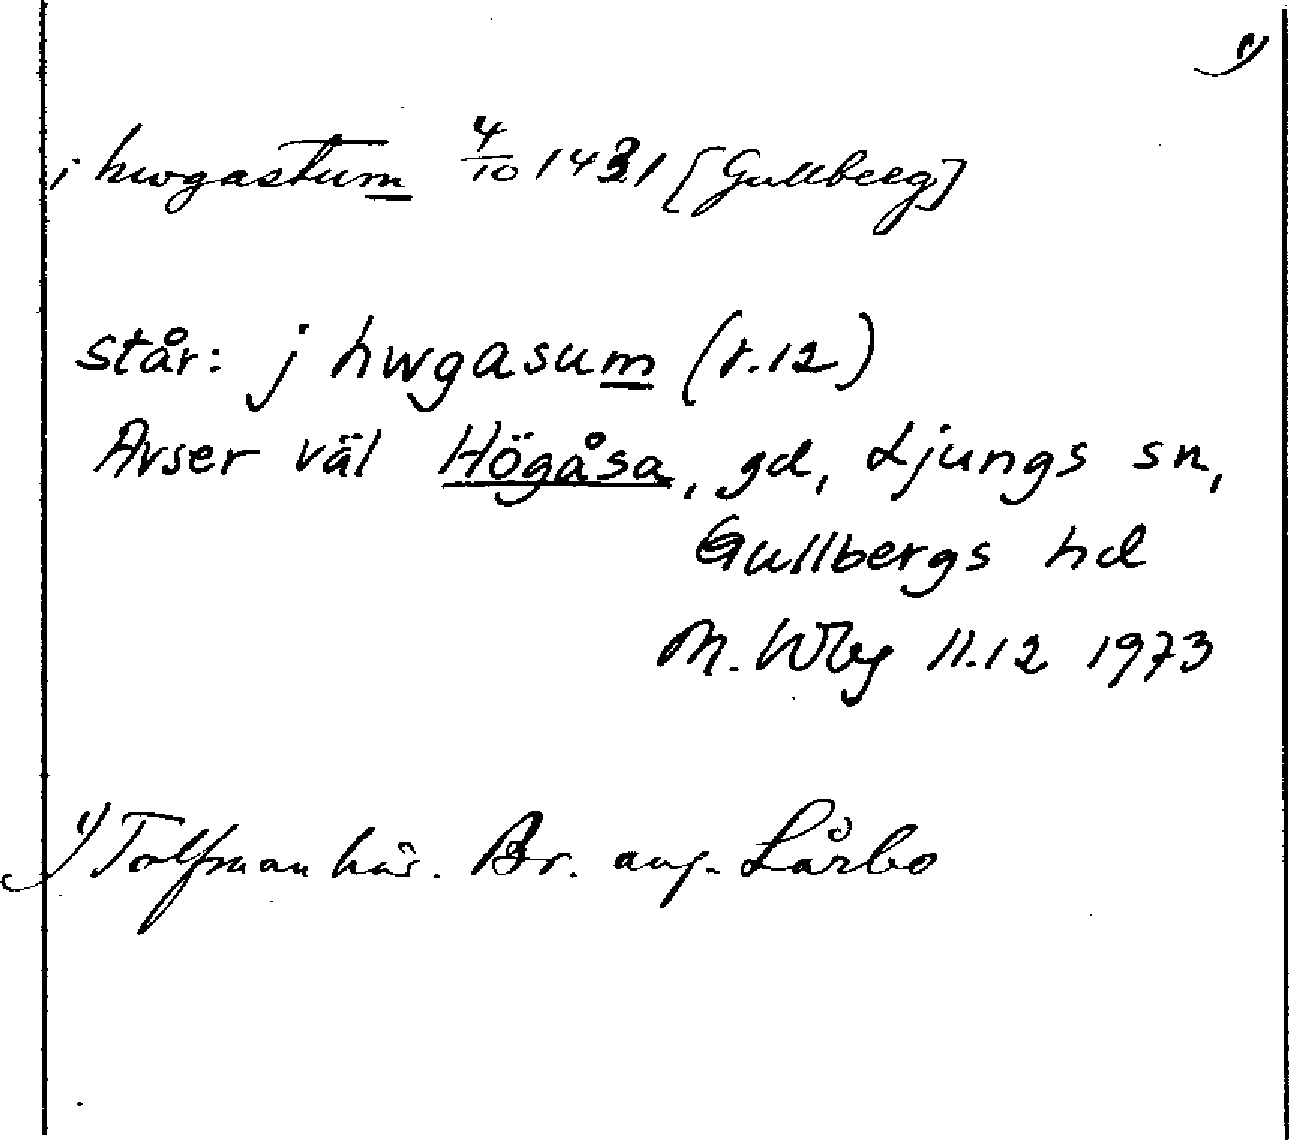 1)
i hwgastum 4/10 1431 [Gullberg]
står: j hwgasum (r.12)
Avser väl Högåsa, gd, Ljungs sn,
Gullbergs hd
M. Wbg 11.12 1973
1) Tolfman här. Br. ang. Lårbo